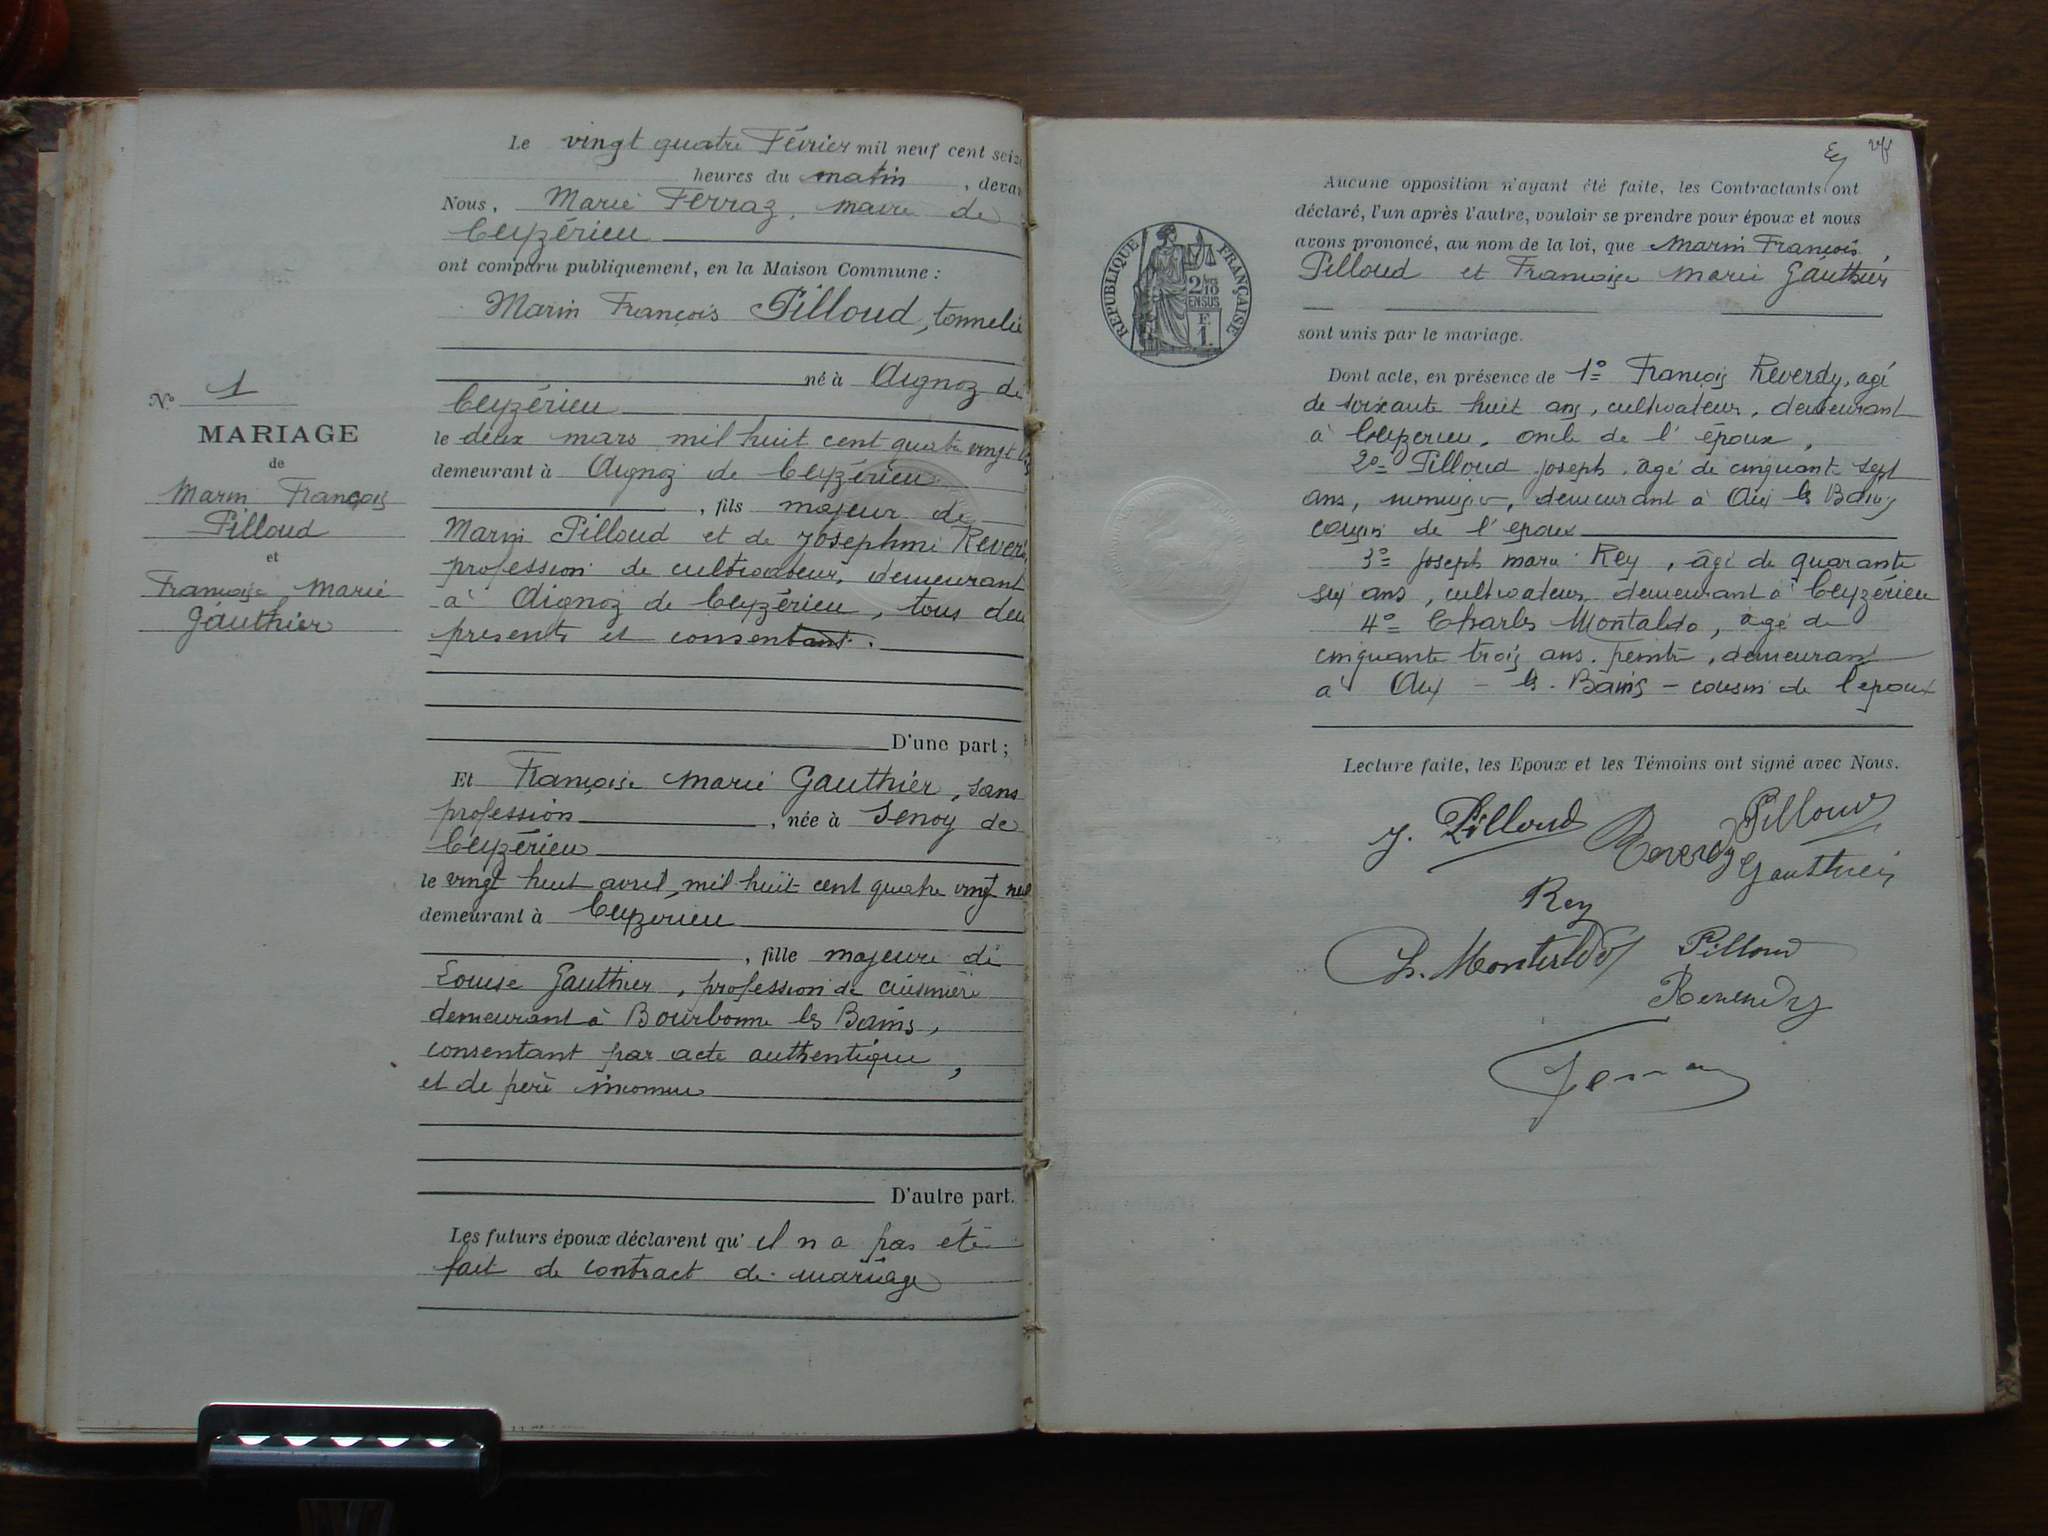 Le vingt quatre Février mil neuf cent seize
heures du matin, devant
Nous, Marie Ferraz, maire de
Ceyzérieu
ont comparu publiquement, en la Maison Commune :
Marin François Pilloud, tonnelie
né à Aignoz de
Ceyzérieu
le deux mars mil huit cent quatre vingt
demeurant à Aignoz de Ceyzérieu
, fils majeur de
Marin Pilloud et de Josephine Rever
profession de cultivateur, demeurant
à Aignoz de Ceyzérieu, tous deu
presents et consentant.
D'une part ;
Et Françoise Marie Gauthier, sans
profession, née à Senoy de
Ceyzérieu
le vingt huit avril mil huit cent quatre vingt neu
demeurant à Ceyzerieu
, fille majeure de
Louise Gauthier, profession de cuisinière
demeurant à Bourbonne les Bains,
consentant par acte authentique,
et de père inconnu
D'autre part.
Les futurs époux déclarent qu'il n a pas été
fait de contract de mariage
No 1
MARIAGE
de
Marin François
Pilloud
et
Françoise Marie
Gauthier
Aucune opposition n'ayant été faite, les Contractants ont
déclaré, l'un après l'autre, vouloir se prendre pour époux et nous
avons prononcé, au nom de la loi, que Marin François
Pilloud et Françoise Marie Gauthier
sont unis par le mariage.
RÉPUBLIQUE FRANÇAISE
2/10
EN SUS
E.
1.
Dont acte, en présence de 1o François Reverdy, agé
de soixante huit ans, cultivateur, demeurant
à Ceyzerieu, oncle de l'époux,
2o Pilloud Joseph, agé de cinquante sept
ans, demeurant à Aix les Bains
cousin de l'epoux
3o Joseph Marie Rey, âgé de quarante
six ans, cultivateur, demeurant à Ceyzérieu
4o Charles Montaldo, agé de
cinquante trois ans, peintre, demeurant
à Aix-les-Bains - cousin de l'epoux
Lecture faite, les Epoux et les Témoins ont signé avec Nous.
J. Pilloud Reverdy Pilloud
Gauthier
Rey
Ch. Montaldo Pilloud
Reverdy
Ferraz